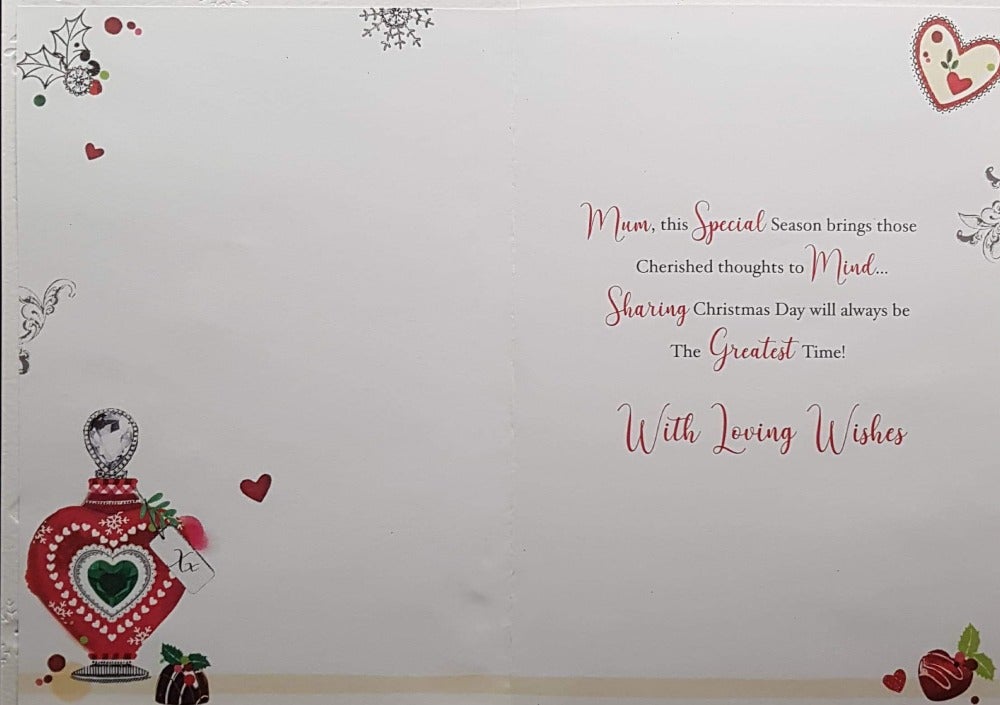 Mum, this Special Season brings those
Cherished thoughts to Mind...
Sharing Christmas Day will always be
The Greatest Time!
With Loving Wishes
Xx